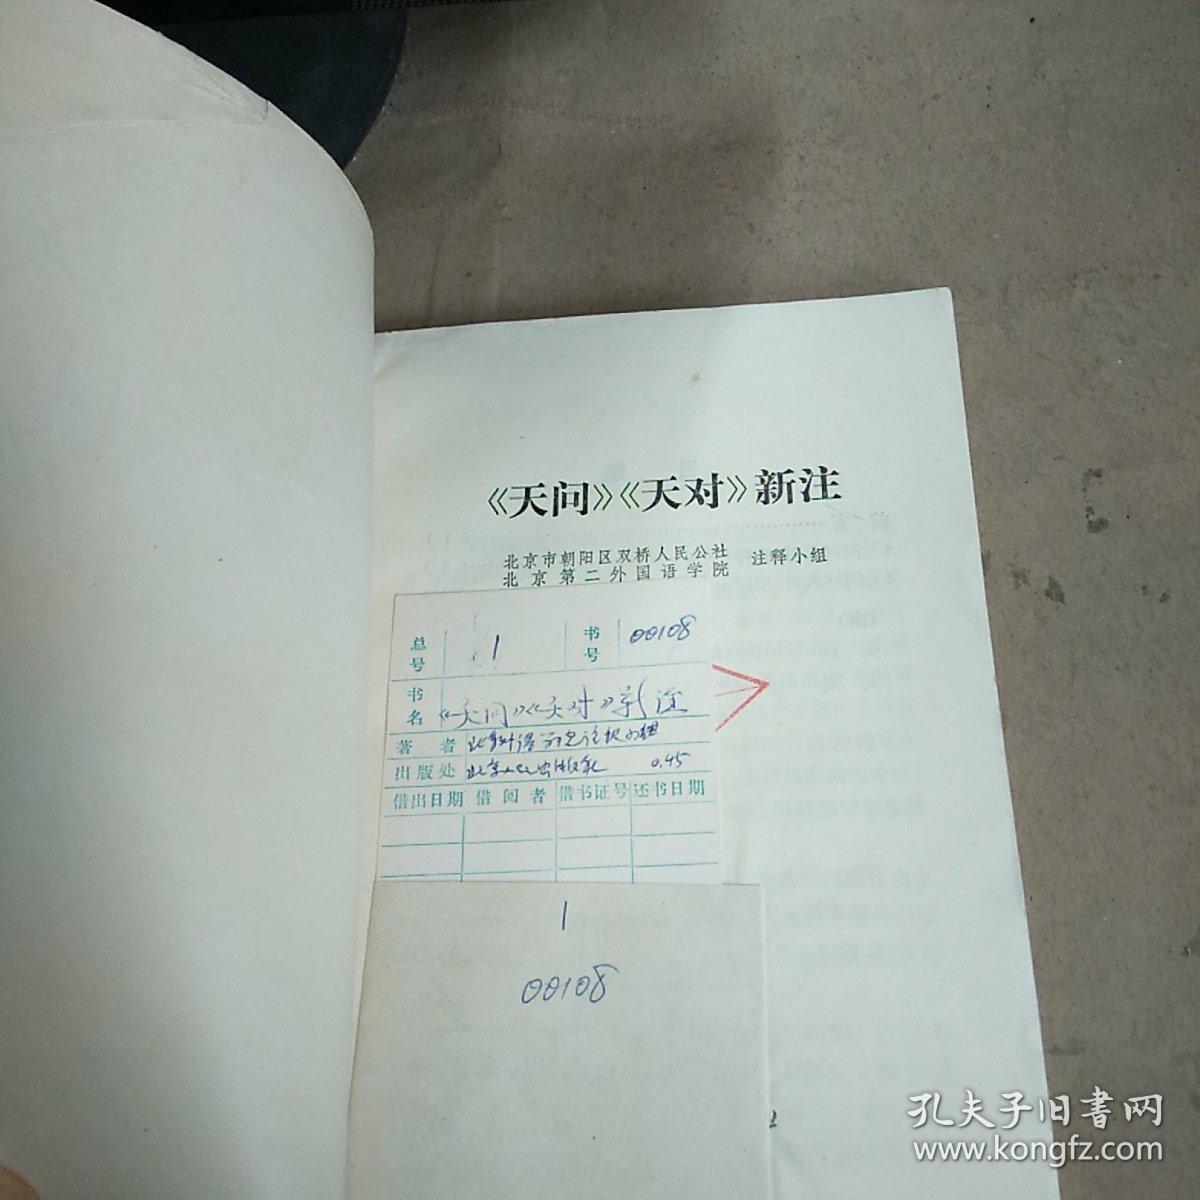 《天问》《天对》新注
北京市朝阳区双桥人民公社
北京第二外国语学院
注释小组
总号 1 书号 00108
书名 《天问》《天对》新注
著者
出版处 北京人民出版社 0.45
借出日期 借阅者 借书证号 还书日期
1
00108
孔夫子旧书网
www.kongfz.com